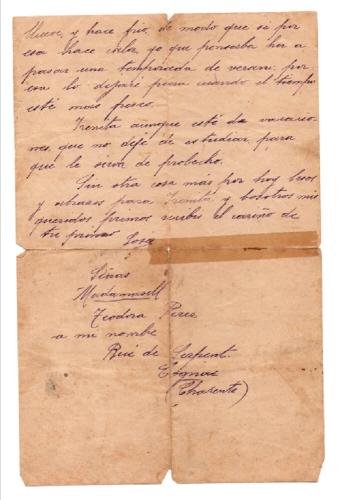 llueve, y hace frio, de modo que si por
esa hace calor ya que pensaba ir a
pasar una temporada de verano; por
eso lo dejaré para cuando el tiempo
esté más fresco.
Ireneta aunque esté de vacacio
nes, que no deje de estudiar, para
que le sirva de probecho.
Sin otra cosa más por hoy besos
y abrazos para Ireneta, y bosotros mis
queridos primos recibir el cariño de
tu prima
Señas
Madamasell
Teodora Perez
a mi nombre
Rue de Serpent.
Cognac
(Charente)